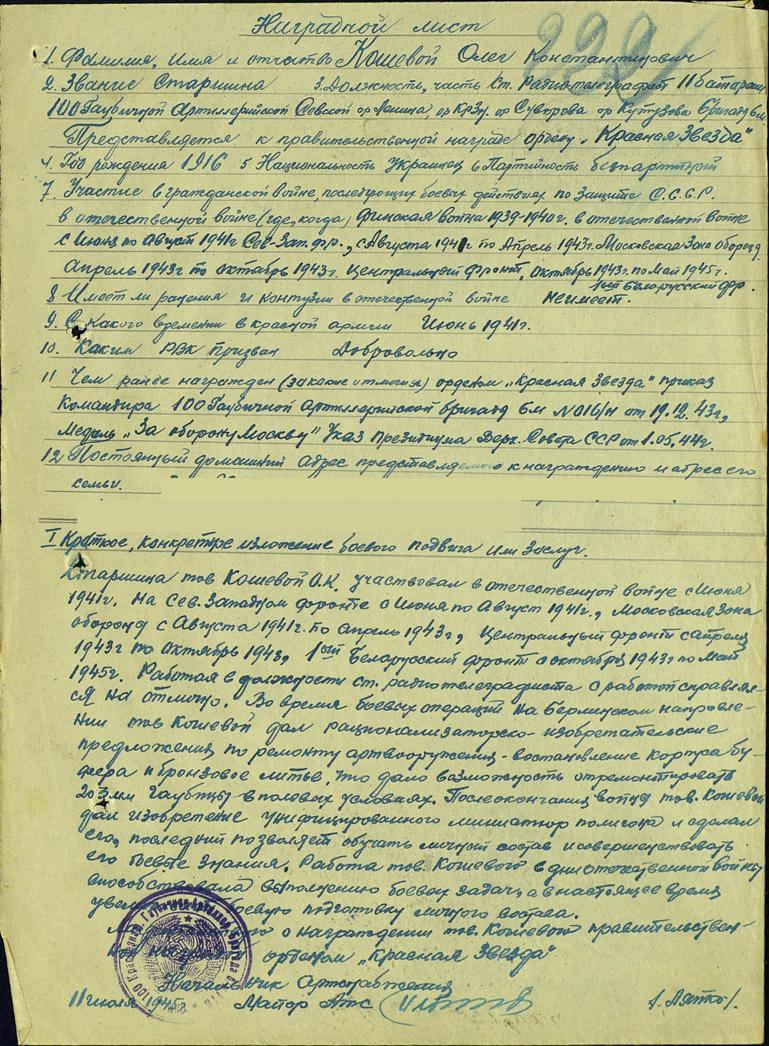 Наградной лист
1. Фамилия, имя и отчество Кошевой Олег Константинович
2. Звание Старшина 3. Должность, часть Ст. Радиотелеграфист 11 батареи
100 Гаубичной Артиллерийской Севской ор Ленина, ор Кр Зн. ор Суворова ор Кутузова бригады б.м.
Представляется к правительственной награде ордену "Красная Звезда"
4. Год рождения 1916 5 Национальность Украинец 6 Партийность беспартийный
7. Участие в гражданской войне, последующих боевых действиях по защите С.С.С.Р.
в отечественной войне (где, когда) Финская война 1939-1940г. в отечественной войне
с Июня по Август 1941г Сев-Зап. фр., с Августа 1941г по Апрель 1943г. Московская Зона обороны,
Апрель 1943г по октябрь 1943г. Центральный фронт, октябрь 1943г. по Май 1945г.
1ый Белорусский фр.
8 Имеет ли ранения и контузии в отечественной войне неимеет.
9. С какого времени в красной армии Июнь 1941г.
10. Каким РВК призван Добровольно
11 Чем ранее награжден (за какие отличия) орденом "Красная Звезда" приказ
Командира 100 Гаубичной Артиллерийской бригады б.м N016/н от 19.12.43г,
Медаль "За оборону Москвы" Указ Президиума Верх. Совета ССР от 1.05.44г.
12 Постоянный домашний адрес представляемого к награждению и адрес его
семьи.
I Краткое, конкретное изложение боевого подвига или заслуг.
Старшина тов Кошевой О.К. участвовал в отечественной войне с Июня
1941г. На Сев. Западном фронте с Июня по Август 1941г., Московская Зона
обороны с Августа 1941г. по Апрель 1943г, Центральный фронт с Апреля
1943г по октябрь 1943, 1ый Белорусский фронт с октября 1943г по Май
1945г. Работая в должности ст. радиотелеграфиста с работой справляет-
ся на отлично. Во время боевых операций на Берлинском направле-
нии тов Кошевой дал рационализаторско-изобретательские
предложения по ремонту артвооружения - востановление корпуса бу-
фера и бронзовое литье, что дало возможность отремонтировать
203мм Гаубицы в полевых условиях. После окончания войны тов. Кошевой
дал изобретение унифицированного миниатюр полигона и сделал
его, последний позволяет обучать личный состав и совершенствовать
его боевые знания. Работа тов. Кошевого в дни отечественной войны
способствовала выполнению боевых задач, а в настоящее время
боевую подготовку личного состава.
о награждении тов. Кошевой правительствен-
ной наградой орденом "Красная Звезда"
Начальник Артснабжения
11 июля 1945г. Майор Атс /. Лятко/.